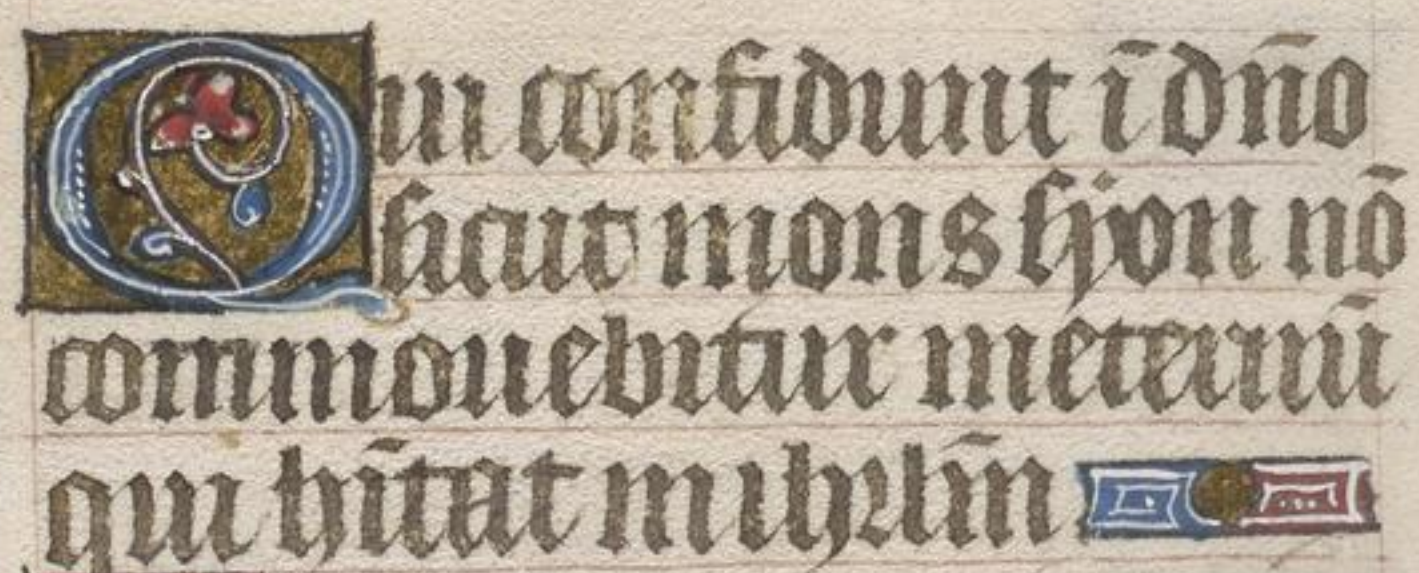 Qui confidunt ī dn̄o
sicut mons syon nō
commouebitur ineternū
qui hītat in ihrlm̄